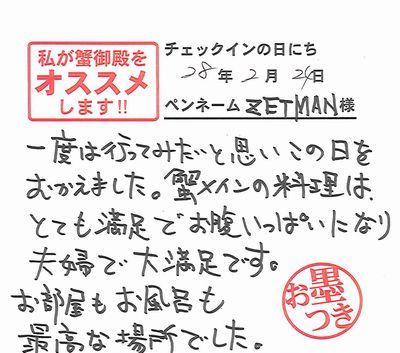 私が蟹御殿を
オススメ
します!!
チェックインの日にち
28年2月24日
ペンネーム ZETMAN様
一度は行ってみたいと思いこの日を
むかえました。蟹メインの料理は、
とても満足でお腹いっぱいになり
夫婦で大満足です。
お部屋もお風呂も
最高な場所でした。
お墨つき